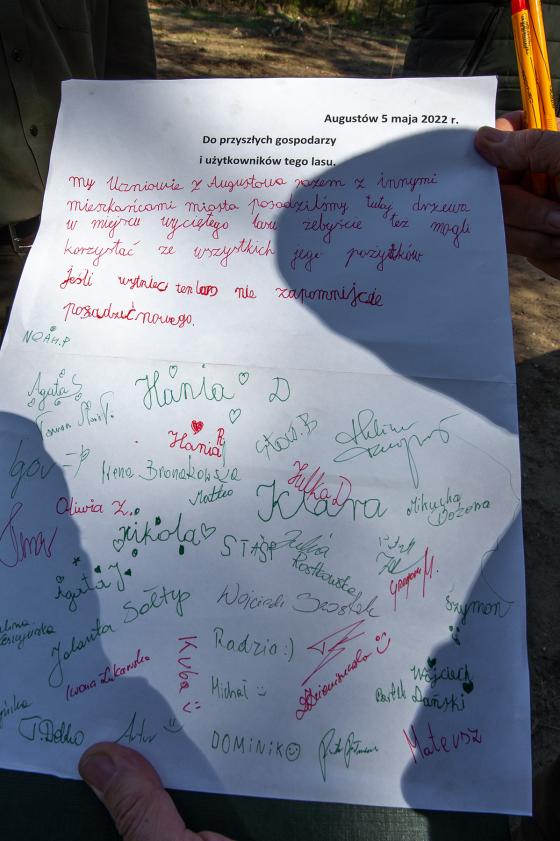 Augustów 5 maja 2022 r.
Do przyszłych gospodarzy
i użytkowników tego lasu.
My Uczniowie z Augustowa razem z innymi
mieszkańcami miasta posadziliśmy tutaj drzewa
w miejscu wyciętego lasu żebyście też mogli
korzystać ze wszystkich jego pożytków
Jeśli wytniecie ten las nie zapomnijcie
posadzić nowego.
NOAH.P
Agata S
Hania D
Hania R
Igor
Irena Bronakowska
Matteo
Julka D
Klara
Oliwia Z.
Nikola
STAŚ P
Julia
Rostkowska
Grzegorz M.
Agata J
Jolanta Sołtys
Wojciech Szostek
Szymon
Iwona Łukawska
Kuba :)
Radzio :)
Michał :)
Wojciech
Bartek Dański
Artur
DOMINIK
Mateusz